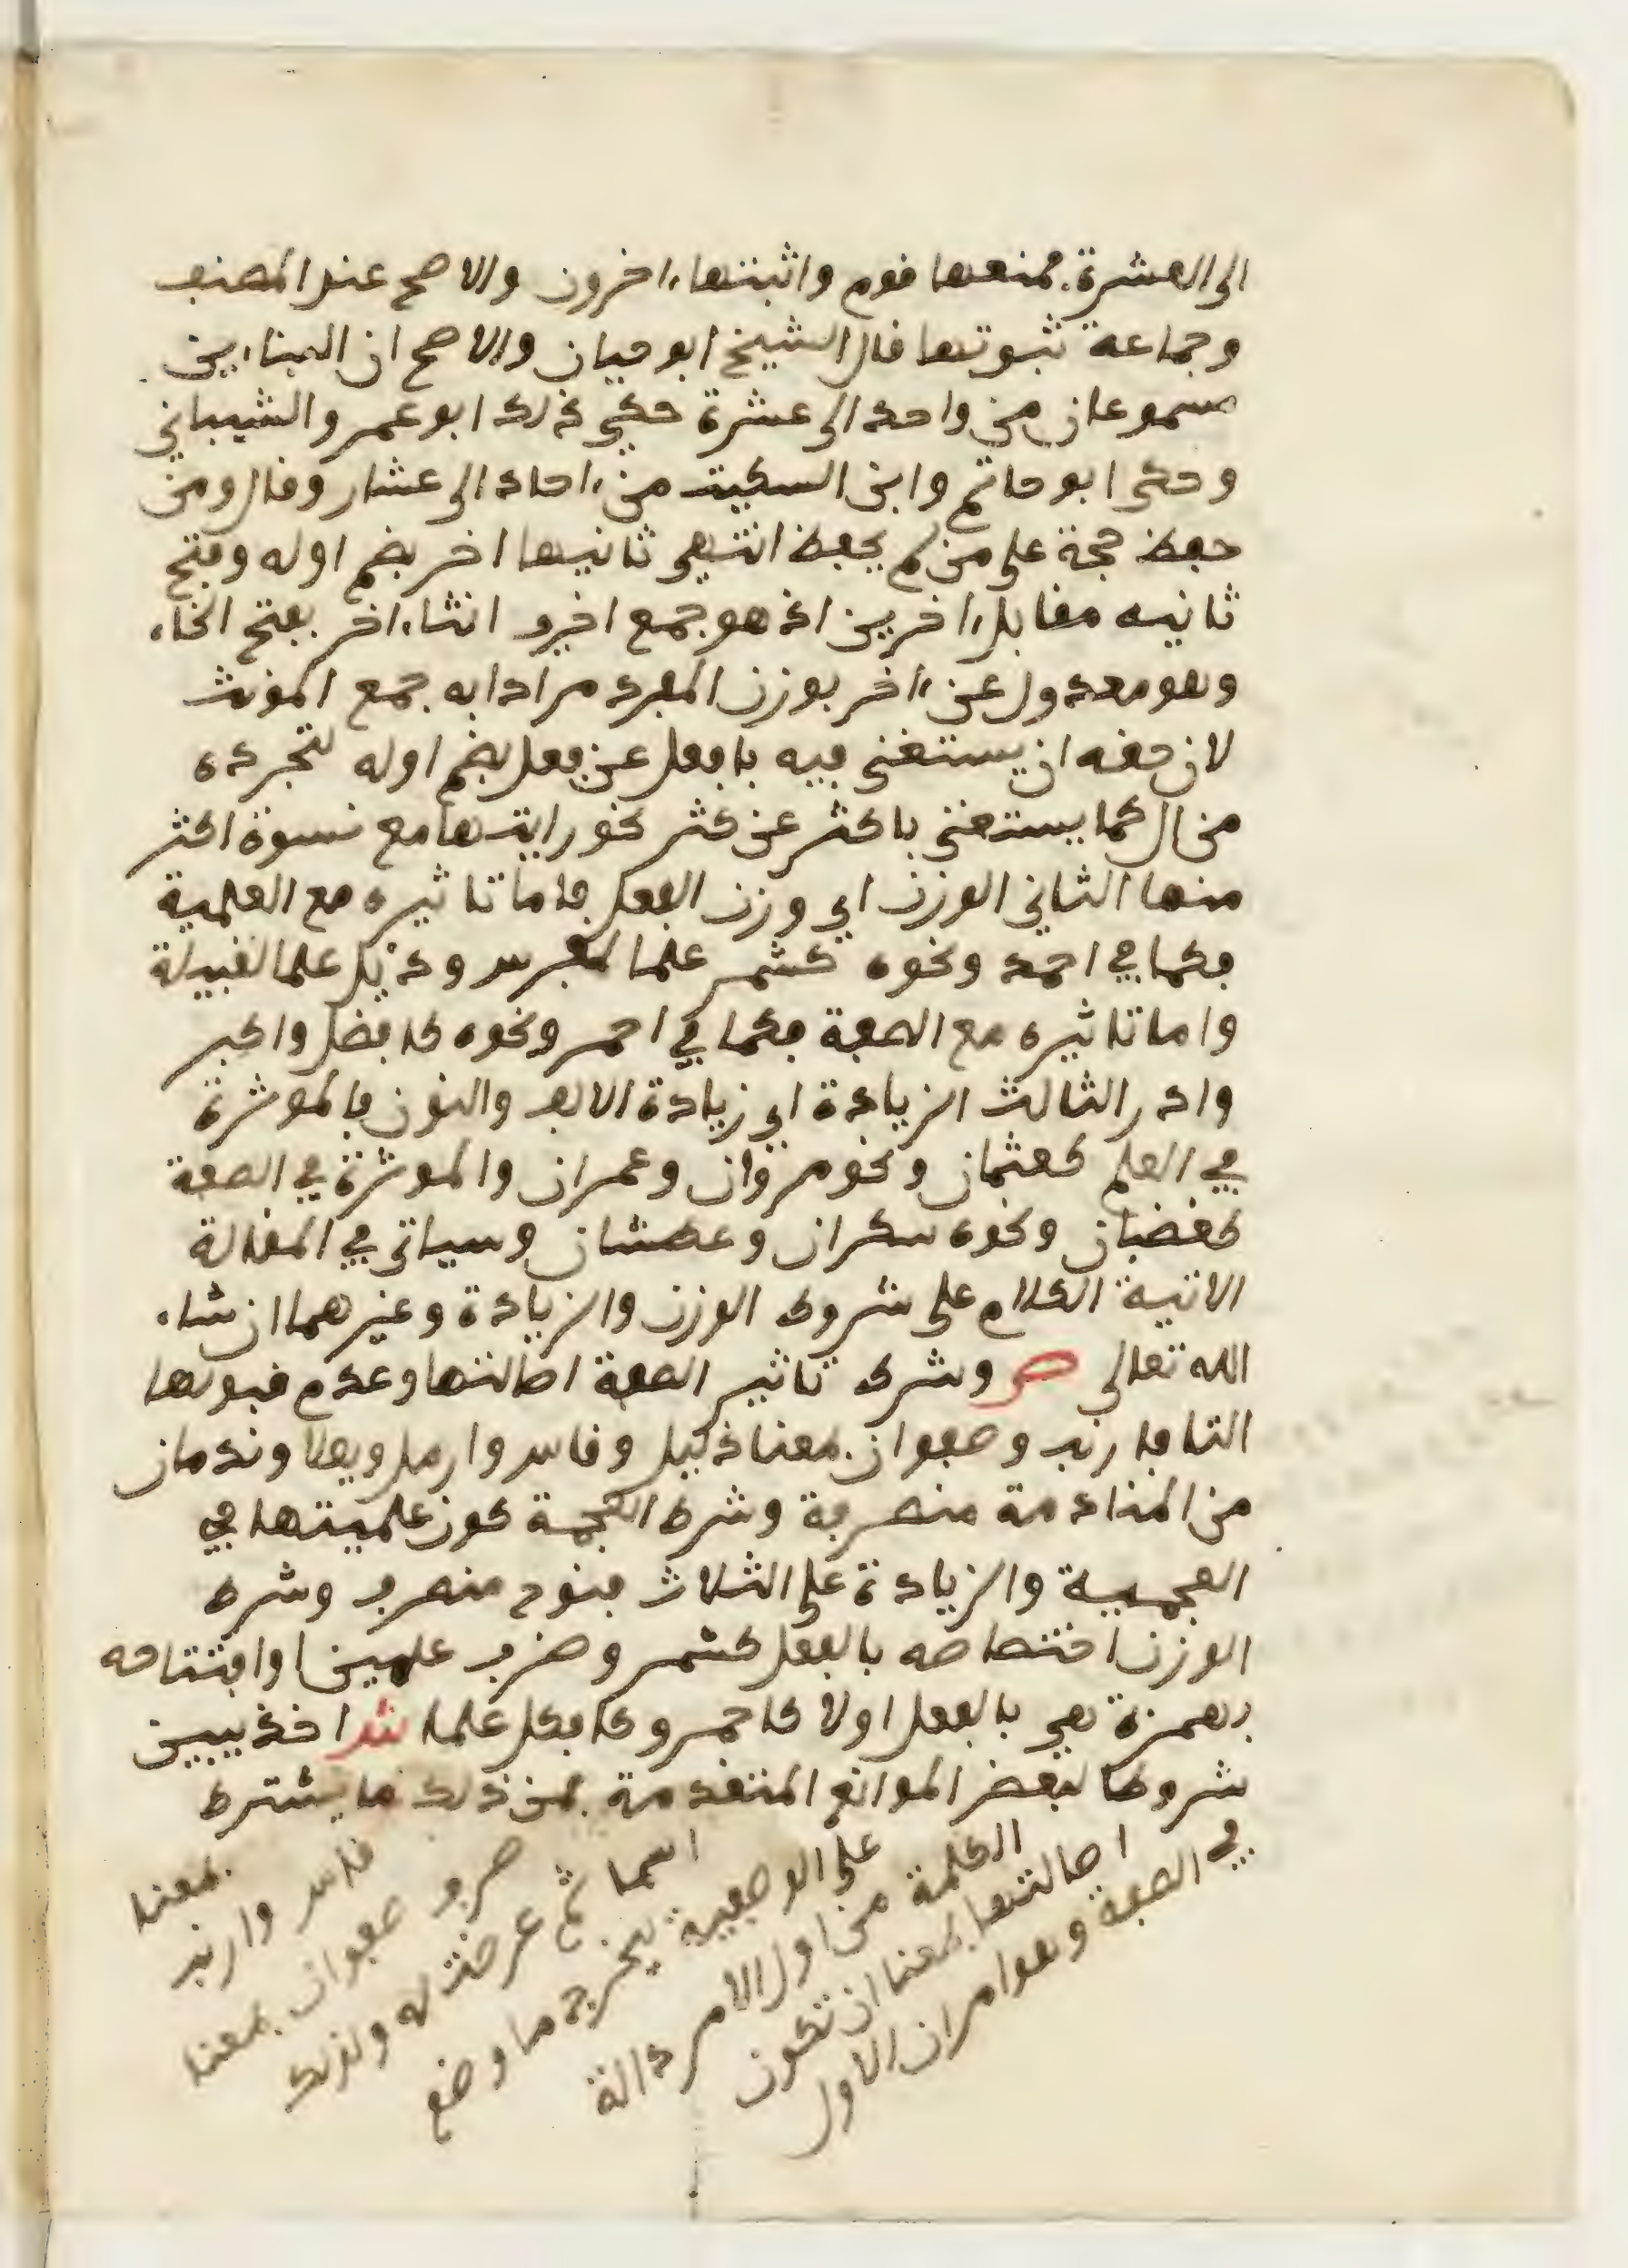 الى العشرة فمنعها قوم واثبتها ءاخرون والاصح عند المصنف
وجماعة ثبوتها قال الشيخ ابو حيان والاصح ان البناءين
مسموعان من واحد الى عشرة حكى ذلك ابو عمرو الشيباني
وحكى ابو حاتم وابن السكيت من ءاحاد الى عشار وقال ومن
حفظ حجة على من لم يحفظ انتهى ثانيها اخر بضم اوله وفتح
ثانيه مقابل ءاخرين اذ هو جمع اخرى انثاءاخر بفتح الخاء
وهو معدول عن ءاخر بوزن المفرد مرادا به جمع المونث
لان حقه ان يستغنى فيه بافعل عن فعل بضم اوله لتجرده
من ال كما يستغنى باكثر عن كثر نحو رايتها مع نسوة اكثر
منها الثاني الوزن اي وزن الفعل فاما تاثيره مع العلمية
فكما في احمد ونحوه كشمر علما لفرس ودئل علما لقبيلة
واما تاثيره مع الصفة فكما في احمر ونحوه كافضل واكبر
وادر الثالث الزيادة اي زيادة الالف والنون فالموثرة
في العلم كعثمان ونحو مروان وعمران والموثرة في الصفة
كغضبان ونحوه سكران وعطشان وسياتي في المقالة
الاتية الكلام على شروط الوزن والزيادة وغيرهما ان شاء
الله تعالى ص وشرط تاثير الصفة اصالتها وعدم قبولها
التا فارنب وصفوان بمعنا ذليل وقاس وارمل ويعملا وندمان
من المنادمة منصرفة وشرط العجمة كون علميتها في
العجمية والزيادة على الثلاث فنوح منصرف وشرط
الوزن اختصاصه بالفعل كشمر وضرب علمين او افتتاحه
بهمزة هي بالفعل اولا كاحمر وكافكل علما ش اخذ يبين
شروطا لبعض الموانع المتقدمة فمن ذلك ما يشترط
في الصفة وهو امران الاول
اصالتها بمعنا ان تكون
الكلمة من اول الامر دالة
على الوصفية ليخرج ما وضع
اسما ثم عرضت له ولذلك
صرف صفوان بمعنا
قاس وارنب
بمعنا